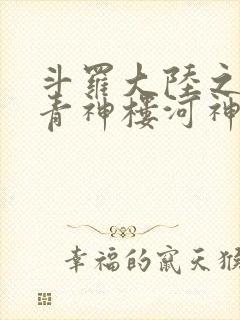 斗羅大陸之
青神樓河神
幸福的竄天猴